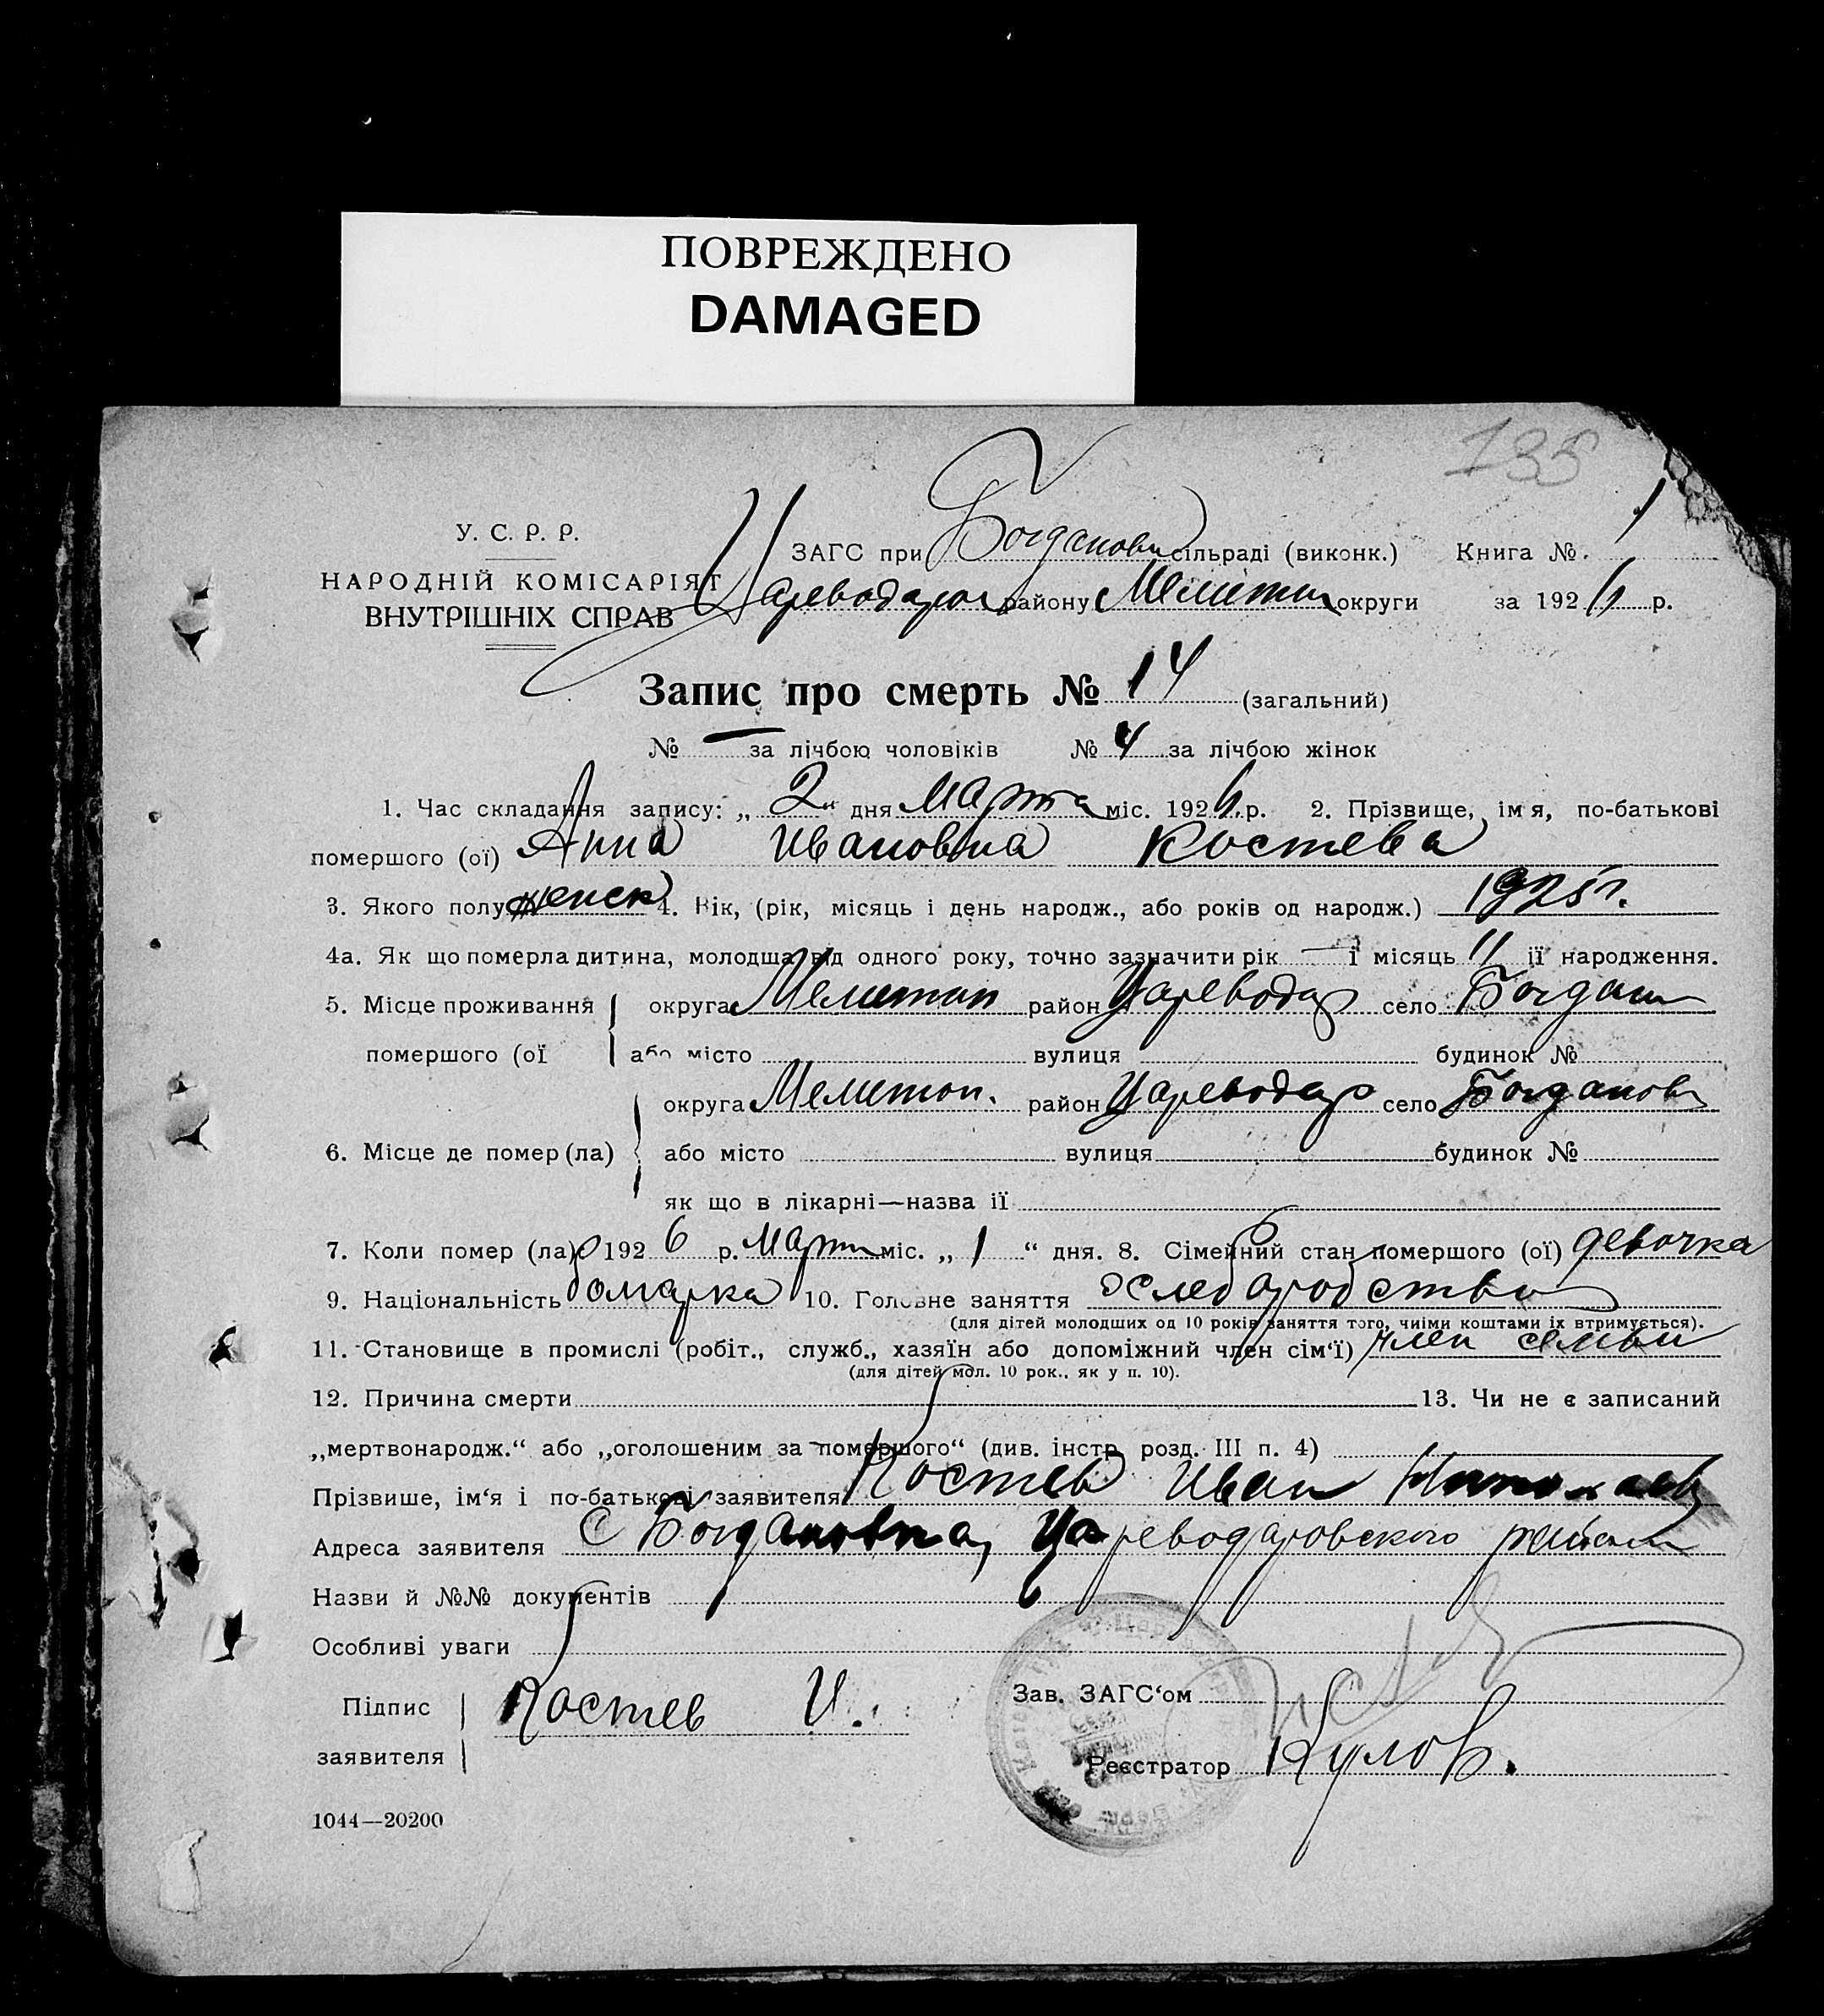 ПОВРЕЖДЕНО
DAMAGED
135
У. С. Р. Р.
НАРОДНІЙ КОМІСАРІЯТ
ВНУТРІШНІХ СПРАВ
ЗАГС при Богданови сільраді (виконк.) Книга № 1
Цареводаров району Мелитоп округи за 1926 р.
Запис про смерть № 14 (загальний)
№ — за лічбою чоловіків № 4 за лічбою жінок
1. Час складання запису: „ 2 “ дня Марта міс. 1926 р. 2. Прізвище, імя, по-батькові
помершого (ої) Анна Ивановна Костева
3. Якого полу женск 4. Вік, (рік, місяць і день народж., або років од народж.) 1925 г.
4а. Як що померла дитина, молодша від одного року, точно зазначити рік — і місяць 11 її народження.
5. Місце проживання округа Мелитоп район Цареводар село Богдан
помершого (ої або місто вулиця будинок №
округа Мелитоп. район Цареводар село Богданов
6. Місце де помер (ла) або місто вулиця будинок №
як що в лікарні—назва її
7. Коли помер (ла) 1926 р. Март міс. „ 1 “ дня. 8. Сімейний стан помершого (ої) девочка
9. Національність болгарка 10. Головне заняття хлебородство
(для дітей молодших од 10 років заняття того, чиїми коштами їх втримується).
11. Становище в промислі (робіт., служб., хазяїн або допоміжний член сім‘ї) член семьи
(для дітей мол. 10 рок., як у п. 10).
12. Причина смерти 13. Чи не є записаний
„мертвонародж.“ або „оголошеним за помершого“ (див. інстр. розд. III п. 4)
Прізвише, ім‘я і по-батькові заявителя Костев Иван Николаев
Адреса заявителя С Богдановка, Цареводаровского район
Назви й №№ документів
Особливі уваги
Підпис Костев И.
заявителя
Зав. ЗАГС‘ом
Реєстратор
1044—20200